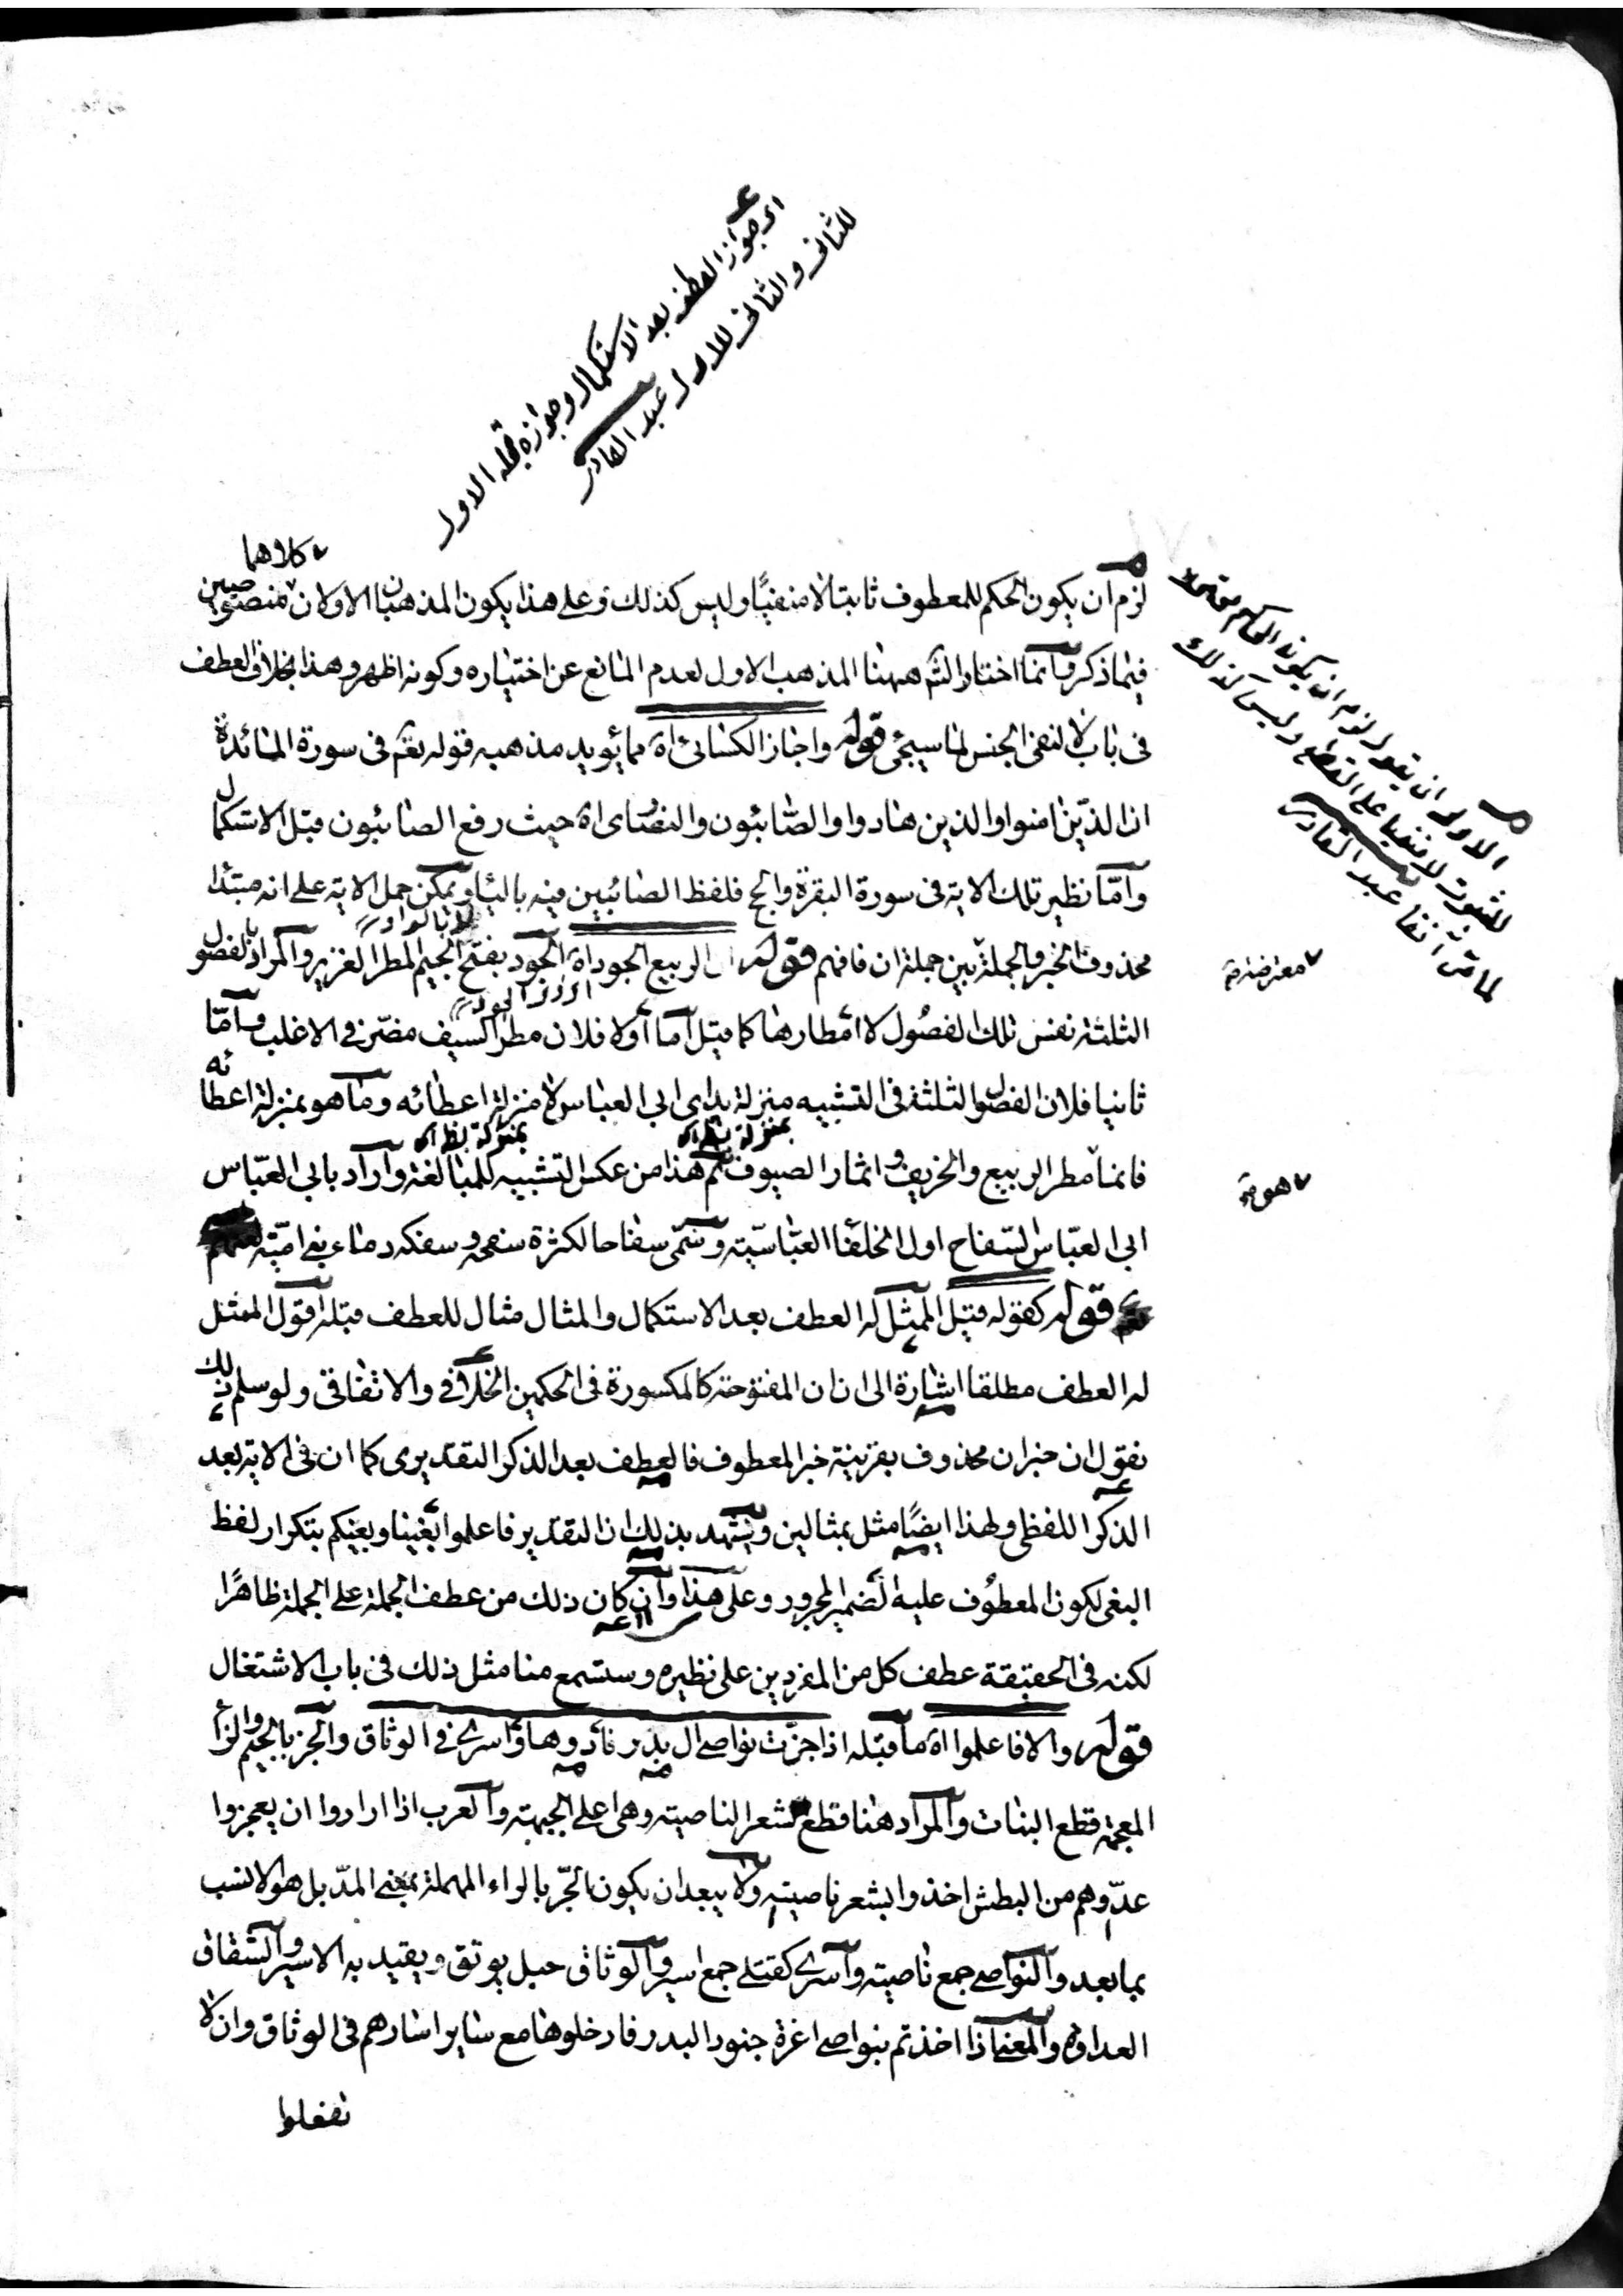 اى جواز العطف بعد الاستكمال وجوازه قبله الاول
للثانى والثانى للاول عبد القادر
كلاهما
لزم ان يكون الحكم للمعطوف ثابتا لا منفيًا وليس كذلك وعلى هذا يكون المذهبان الاولان منصوصين
فيما ذكر وانما اختار الشم ههنا المذهب الاول لعدم المانع عن اختياره وكونه اظهر وهذا بخلاف العطف
فى باب لا لنفى الجنس لما سيجئ قوله واجاز الكسائى اه مما يؤيد مذهبه قوله تعم فى سورة المائدة
ان الذين امنوا والذين هادوا والصّابئون والنصارى اه حيث رفع الصابئون قبل الاستكمال
وامّا نظير تلك الاية فى سورة البقرة والحج فلفظ الصائبين فيه بالياء ويمكن حمل الاية على انه مبتدا
لا بالواو
محذوف الخبر والجملة بين جملة ان فافهم قوله ان الربيع الجود اه الجود بفتح الجيم المطر الغزير والمراد بالفصول
الثلثة نفس تلك الفصول لا امطارها كما قيل اما اولا فلان مطر الصيف مضرّ فى الاغلب وامّا
ثانيا فلان الفصول الثلثة فى التشبيه منزلة يداى ابى العباس لا منزلة اعطائه وما هو بمنزلة اعطائه
فانما مطر الربيع والخريف و اثمار الصيوف ثم هذا من عكس التشبيه للمبالغة واراد بابى العبّاس
ابى العبّاس السّفاح اول الخلفا العبّاسيّة وسمّى سفاحا لكثرة سفحه وسفكه دماء بنى اميّة
قوله كقوله قيل الممثل له العطف بعد الاستكمال والمثال مثال للعطف قبله اقول الممثل
له العطف مطلقا اشارة الى ان ان المفتوحة كالمكسورة فى الحكمين الخلافى والاتفاقى ولو سلم ذلك
نقول ان خبر ان محذوف بقرينة خبر المعطوف فالعطف بعد الذكر التقديرى كما ان فى الاية بعد
الذكر اللفظى ولهذا ايضًا مثل بمثالين ويشهد بذلك ان التقدير فاعلموا بغينا وبغيكم بتكرار لفظ
البغى لكون المعطوف عليه الضمير المجرور وعلى هذا وان كان ذلك من عطف الجملة على الجملة ظاهرًا
لكنه فى الحقيقة عطف كل من المفردين على نظيره وستسمع منا مثل ذلك فى باب الاشتغال
قوله والا فاعلموا اه ما قبله اذا جزّت نواصى ال بدر فادوها واسرى فى الوثاق والجز بالجيم والزا
المعجمة قطع النبات والمراد ههنا قطع شعر الناصية وهى على الجبهة والعرب اذا ارادوا ان يعجزوا
عدّوهم من البطش اخذوا بشعر ناصيته ولا يبعد ان يكون الجرّ بالراء المهملة بمعنى المدّ بل هو الانسب
بما بعد والنواصى جمع ناصية واسرى كقتلى جمع اسير والوثاق حبل يوثق ويقيد به الاسير والشقاق
العداوة والمعنى اذا اخذتم بنواصى اعزة جنود البدر فادخلوها مع ساير اسارهم فى الوثاق وان لا
تفعلوا
الاولى ان يقول لزم ان يكون الحكم محتملا
للثبوت لا منفيا على القطع وليس كذلك
لما مرّ آنفا عبد القادر
معترضة
هو